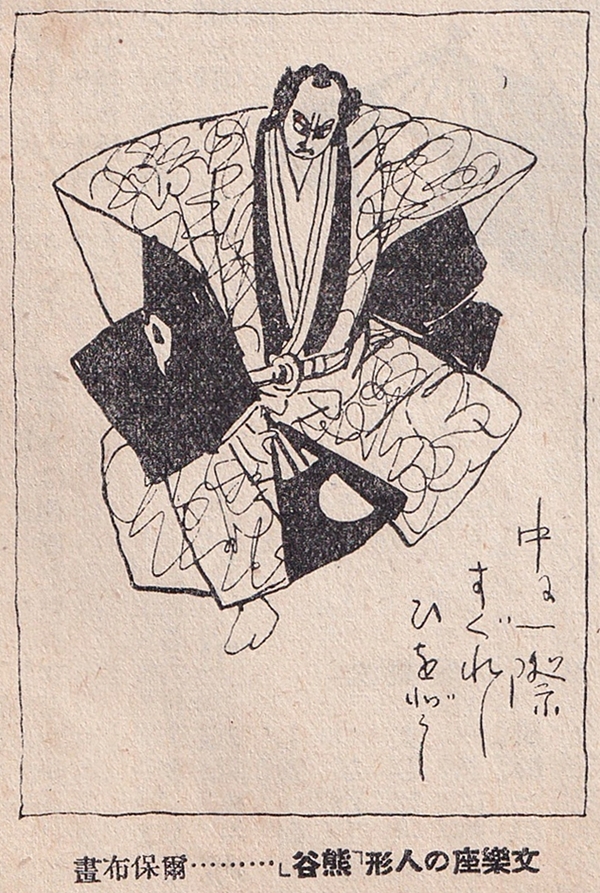 中に一際
すぐれし
ひをどし
文樂座の人形「熊谷」………爾保布畫